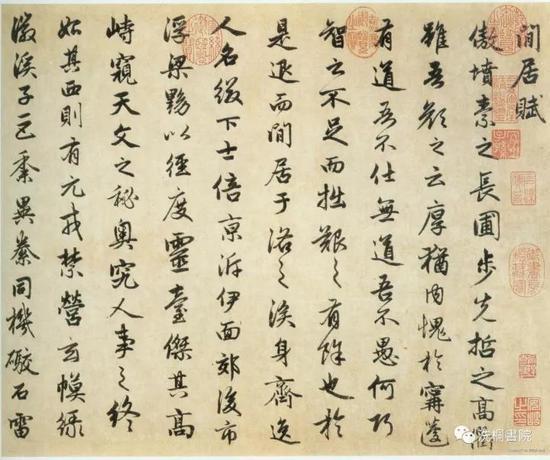 閒居賦
傲墳素之長圃步先哲之高衢
雖吾顏之云厚猶內愧於甯蘧
有道吾不仕無道吾不愚何巧
智之不足而拙艱之有餘也於
是退而閒居于洛之涘身齊逸
人名綴下士倍京泝伊面郊後市
浮梁黝以徑度靈臺傑其高
峙窺天文之秘奧究人事之終
始其西則有元戎禁營玄幙綠
徽溪子巨黍異絭同機礮石雷
洗桐書院